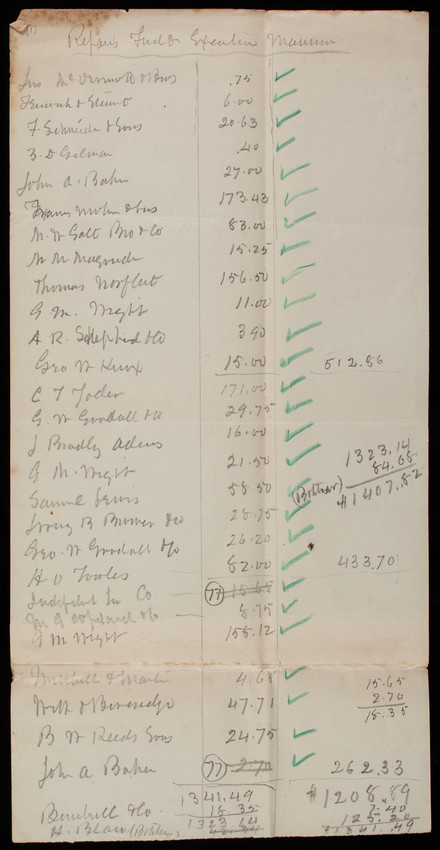 Repairs Fuel &c Executive Mansion
Jno McDermott & Bros .75
6.00
F Schneider & Sons 20.63
Z. D Gilman .40
John A. Baker 27.00
173.43
M. W Galt Bro & Co 83.00
W M Magruder 15.25
Thomas Norfleet 156.50
G M. Wright 11.00
A R. Shepherd & Co 3.90
Geo W Knox 15.00 512.86
C T Yoder 171.00
G. W Goodall & Co 29.75
J Bradley Adams 16.00
G. M. Wright 21.50
Samuel Lewis 58.50
28.75
Geo. W Goodall & Co 26.20
H O Towles 82.00 433.70
Co (77) 15.65
M G Copeland & Co 8.75
G M Wright 155.12
1323.14
84.68
(Botcher) $1407.82
Mitchell & Martin 4.65
Webb & Beveridge 47.71
B W Reeds Sons 24.75
John A Baker (77) 2.70 262.33
15.65
2.70
18.35
1341.49
18.35
1323.14
Burchell & Co
H. Blau
$1208.89
7.40
125.20
$1341.49